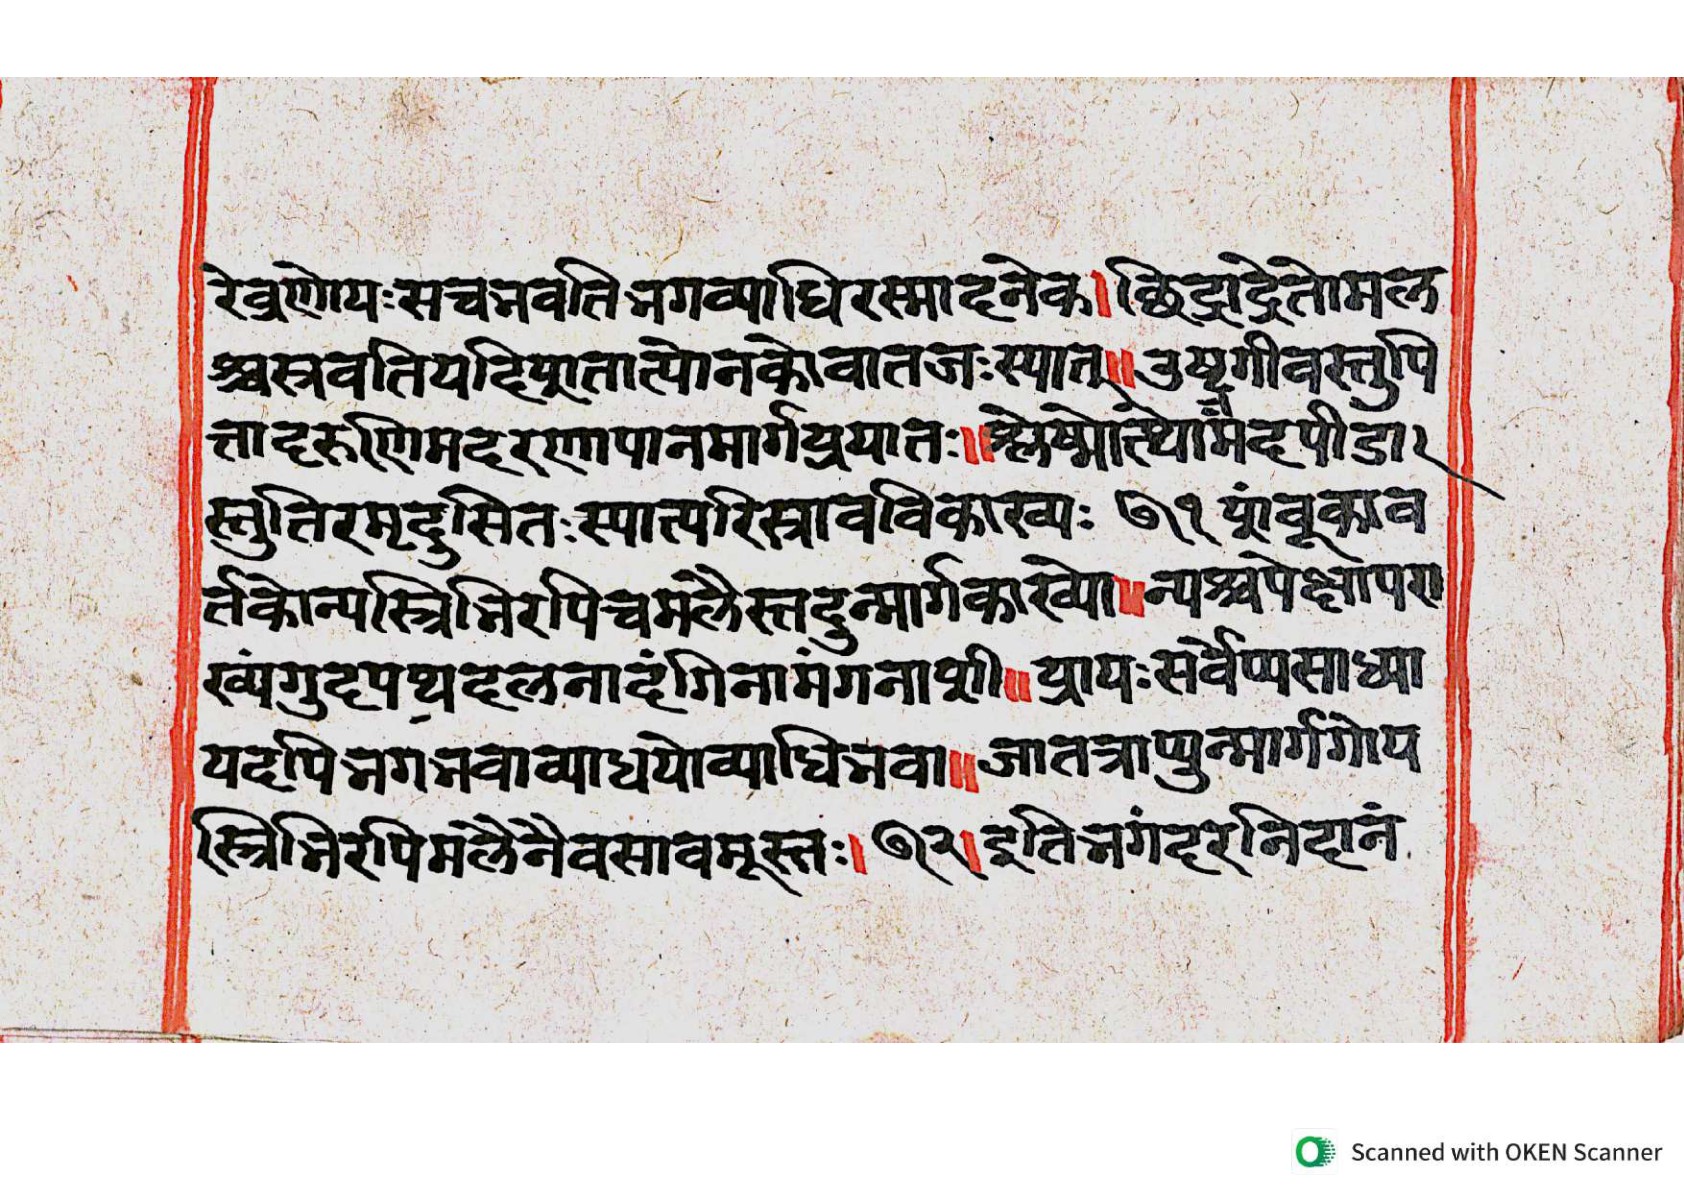 रेव्रणोयःसचभवतिभगव्याधिरस्मादनेक। छिद्राद्रेतोमल
श्चस्त्रवतियदिशतात्पोनकोवातजःस्यात्॥ उष्ट्रग्रीवस्तुपि
त्तादरुणिमदरणापानमार्गप्रयातः॥ श्लेष्मोत्थोमंदपीडा
स्तुतिरमृदुसितःस्यात्परिस्त्रावविकाख्यः ७१ शंबूकाव
र्तकोन्यस्त्रिभिरपिचमलैस्तदुन्मार्गकाख्यो॥ न्यश्चपेक्षोपरा
ख्यंगुदपथदलनादंगिनामंगनाशी॥ प्रायःसर्वेप्यसाध्या
यदपिभगभवाव्याधयोव्याधिभवा॥ जातत्राप्युन्मार्गगोय
स्त्रिभिरपिमलैनैवसावमूस्तः। ७२। इतिभगंदरनिदानं
Scanned with OKEN Scanner